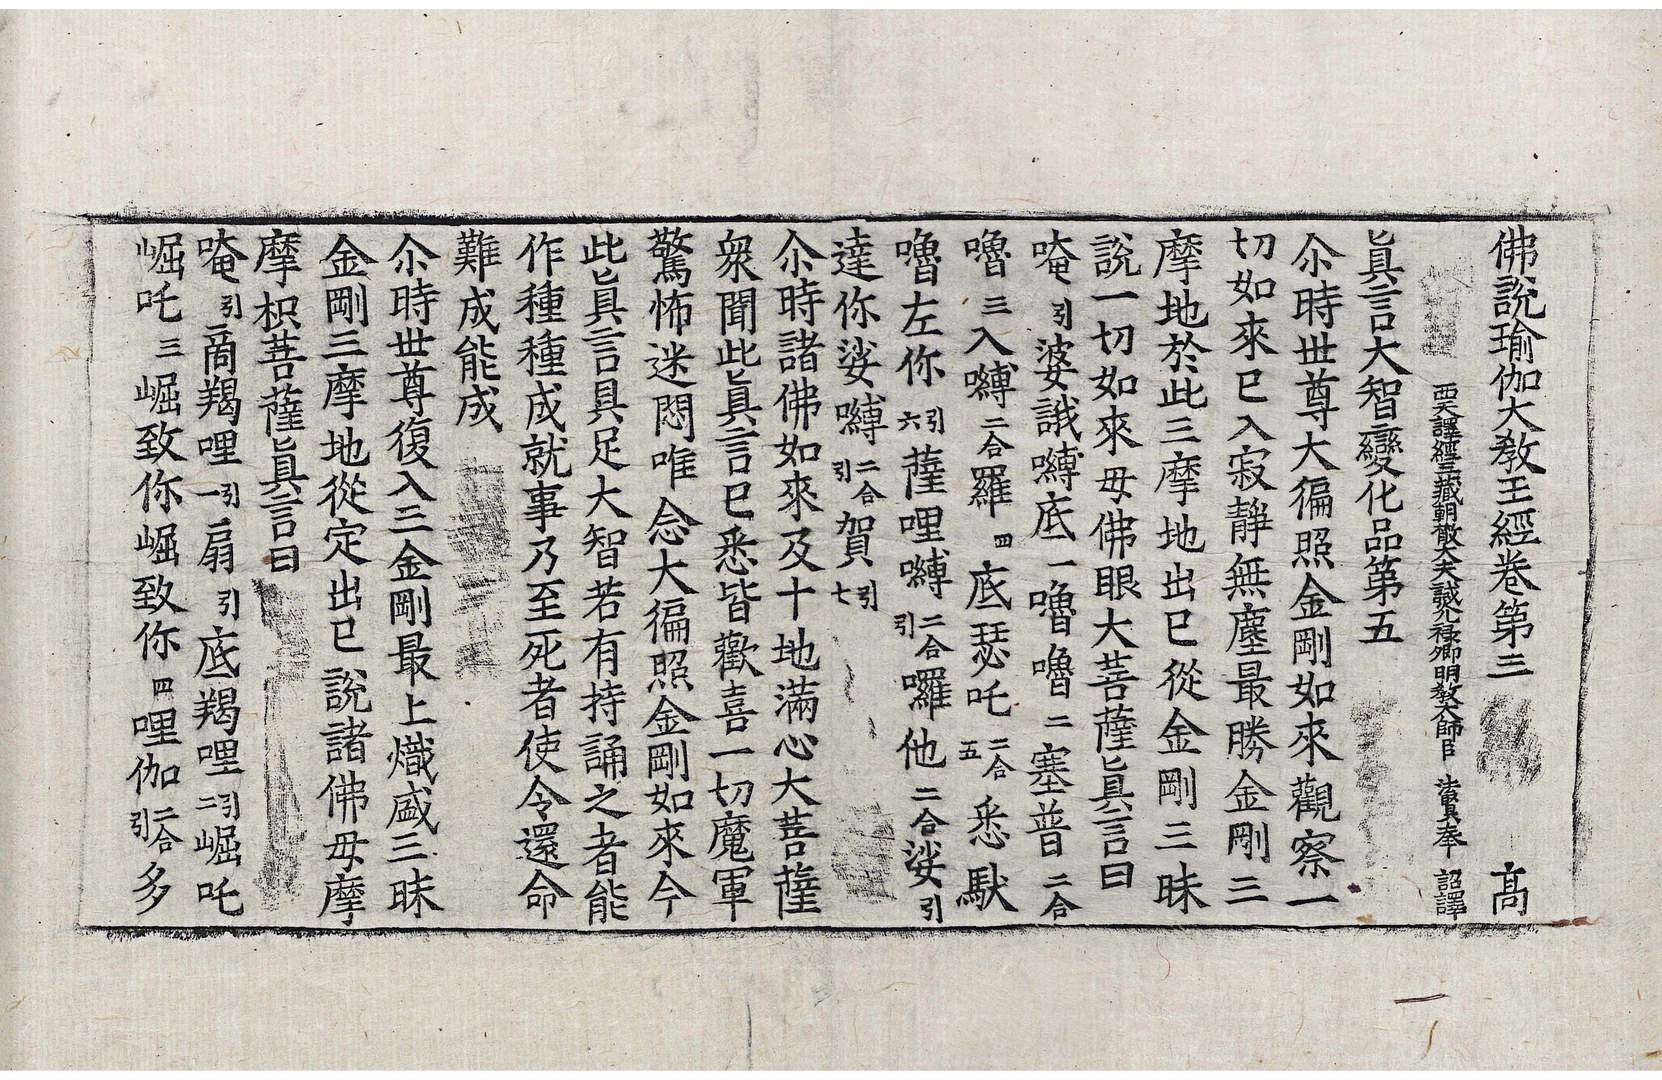 佛說瑜伽大敎王經卷第三　高
西天譯經三藏朝散大夫試光祿卿明敎大師臣法賢奉　詔譯
眞言大智變化品第五
尒時世尊大徧照金剛如來觀察一
切如來已入寂靜無塵最勝金剛三
摩地於此三摩地出已從金剛三昧
說一切如來毋佛眼大菩薩眞言曰
唵引婆誐嚩底一嚕嚕二塞普二合
嚕三入嚩二合羅四底瑟吒二合五悉馱
嚕左你引六薩哩嚩二合引囉他二合娑引
達你娑嚩二合引賀引七
尒時諸佛如來及十地滿心大菩薩
衆聞此眞言已悉皆歡喜一切魔軍
驚怖迷悶唯念大徧照金剛如來今
此眞言具足大智若有持誦之者能
作種種成就事乃至死者使令還命
難成能成
尒時世尊復入三金剛最上熾盛三昧
金剛三摩地從定出已說諸佛毋摩
摩枳菩薩眞言曰
唵引商羯哩引一扇引底羯哩引二崛吒
崛吒三崛致你崛致你四哩伽二合引多